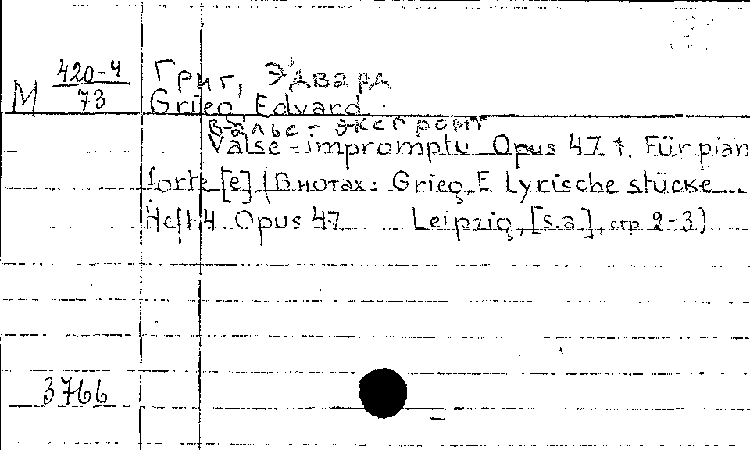 М 420-4/73
Григ, Эдвард
Grieg Edvard
Вальс-экспромт
Valse-impromptu Opus 47.1. Für pian
forte [e] (В нотах: Grieg, E Lyrische stücke
Heft 4. Opus 47 Leipzig, [s.a], стр 2-3)
3766